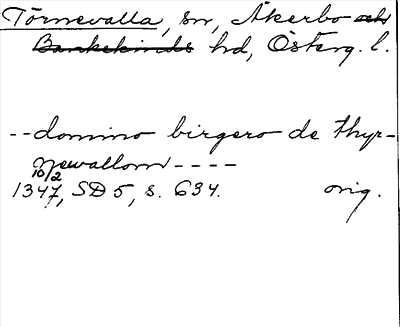 Törnevalla, sn, Åkerbo och
Bankekinds hd, Österg. l.
--domino birgero de thyr-
newallom----
10/2
1347, SD 5, s. 634. orig.